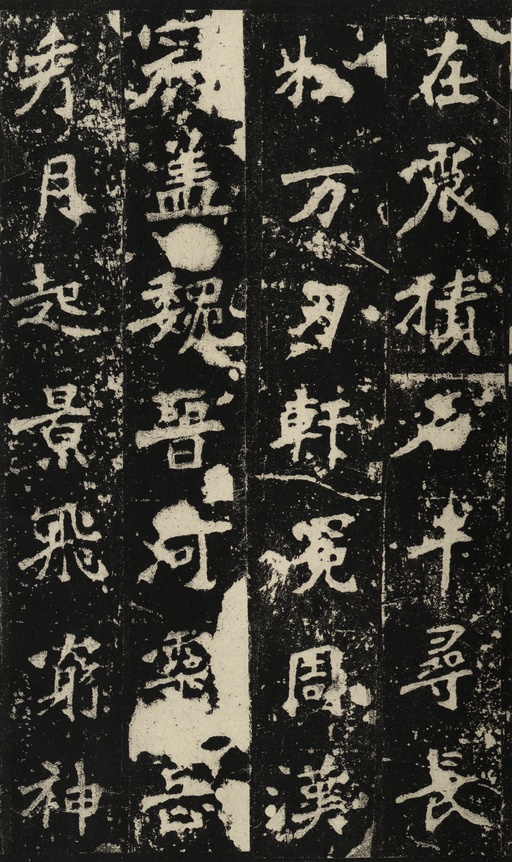 在震積石千尋長
松万刃軒冕周漢
冠盖魏晉河靈岳
秀月起景飛窮神